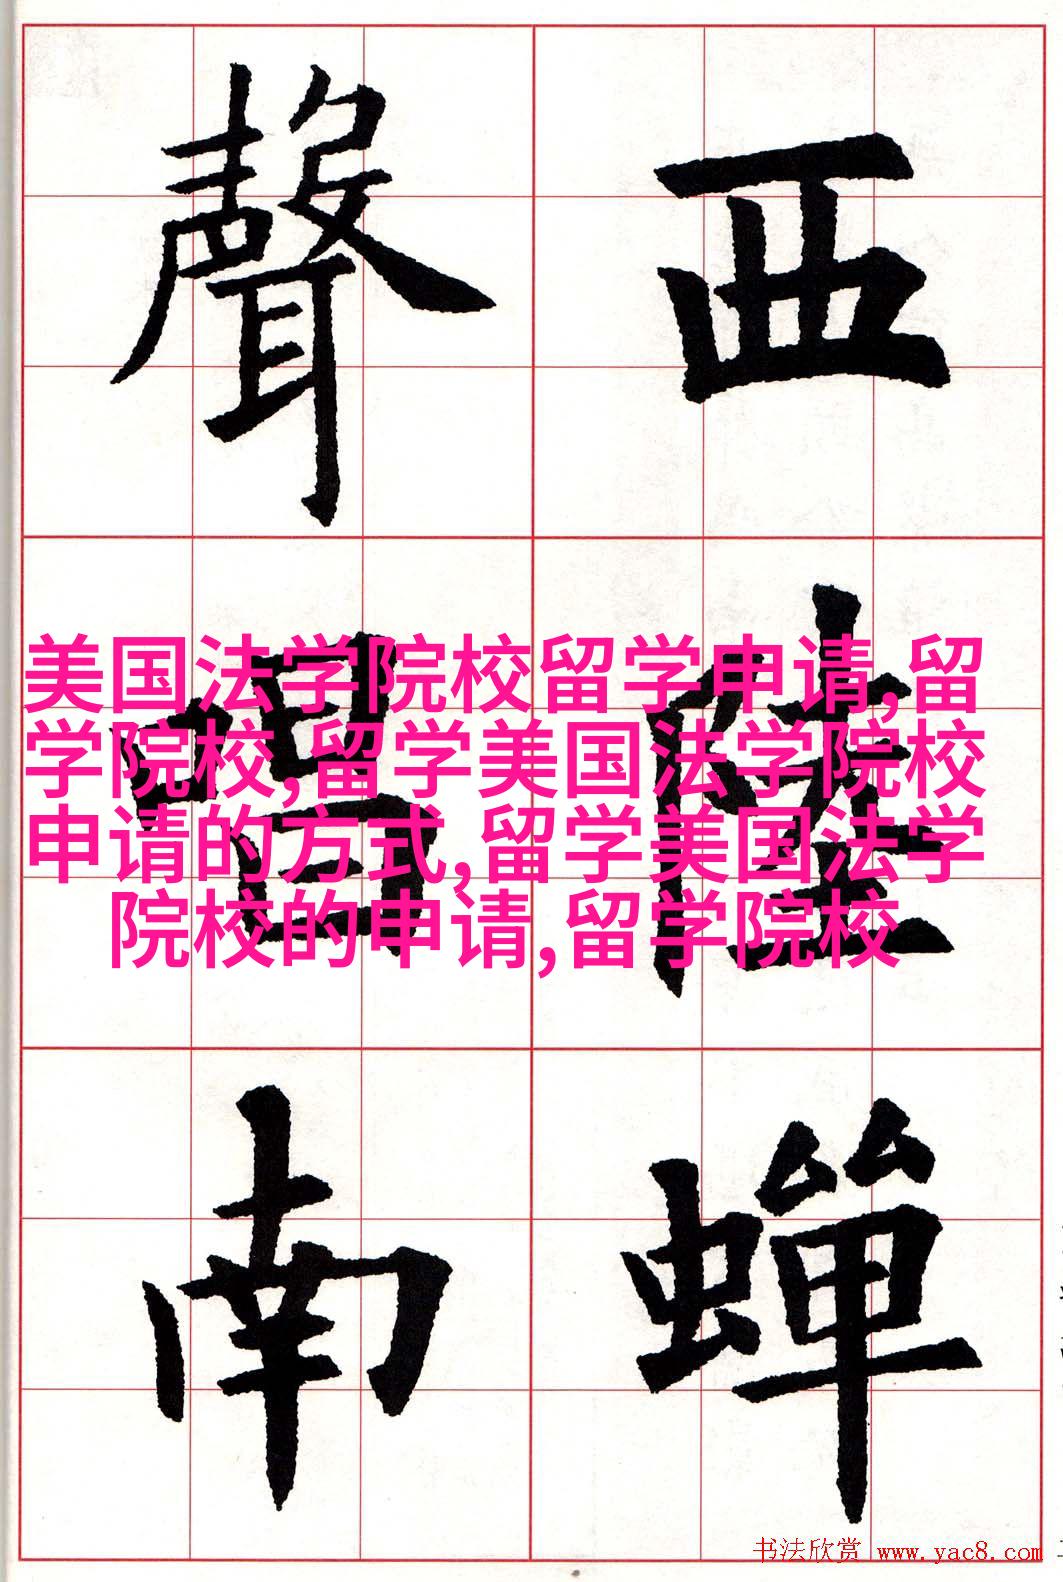 西陸蟬
聲唱南
美国法学院校留学申请,留
学院校,留学美国法学院校
申请的方式,留学美国法学
院校的申请,留学院校
书法欣赏 www.yac8.com